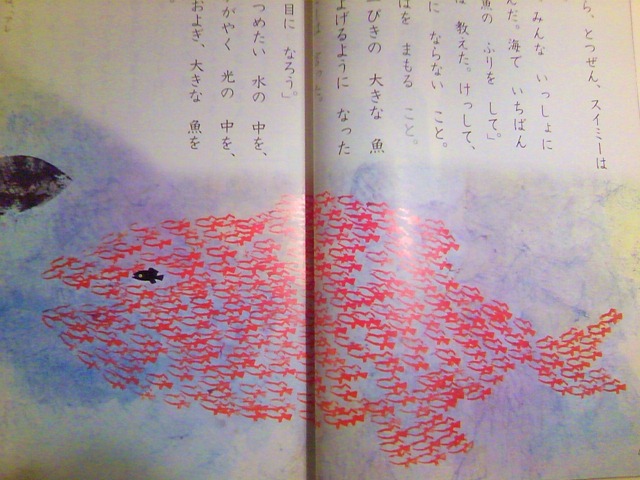 ら、とつぜん、スイミーは
みんな いっしょに
んだ。海で いちばん
魚の ふりを して」
教えた。けっして、
に ならない こと。
を まもる こと。
ぴきの 大きな 魚
よげるように なった
目に なろう。」
つめたい 水の 中を、
がやく 光の 中を、
およぎ、大きな 魚を